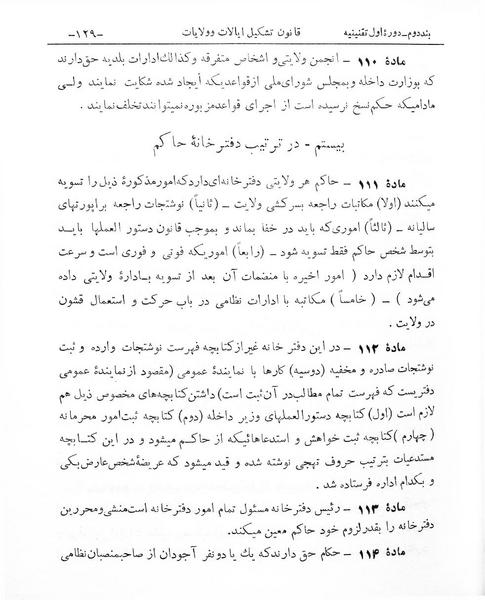 بنددوم_دورهٔ اول تقنینیه قانون تشکیل ایالات وولایات -۱۲۹-
مادهٔ ۱۱۰ - انجمن ولایتی و اشخاص متفرقه و کذالك ادارات بلدیه حق دارند
که بوزارت داخله و بمجلس شورای ملی از قواعدیکه ایجاد شده شکایت نمایند ولی
مادامیکه حکم نسخ نرسیده است از اجرای قواعد مزبوره نمیتوانند تخلف نمایند
بیستم - در ترتیب دفترخانهٔ حاکم
مادهٔ ۱۱۱ - حاکم هر ولایتی دفترخانه‌ای دارد که امور مذکورهٔ ذیل را تسویه
میکنند (اولا) مکاتبات راجعه بسرکشی ولایت _ (ثانیاً) نوشتجات راجعه براپورتهای
سالیانه _ (ثالثاً) اموری که باید در خفا بماند و بموجب قانون دستور العملها باید
بتوسط شخص حاکم فقط تسویه شود _ (رابعاً) اموریکه فوتی و فوری است و سرعت
اقدام لازم دارد ( امور اخیره با منضمات آن بعد از تسویه بادارهٔ ولایتی داده
می‌شود ) _ ( خامساً ) مکاتبه با ادارات نظامی در باب حرکت و استعمال قشون
در ولایت .
مادهٔ ۱۱۲ - در این دفتر خانه غیر از کتابچه فهرست نوشتجات وارده و ثبت
نوشتجات صادره و مخفیه (دوسیه) کارها با نمایندهٔ عمومی (مقصود از نمایندهٔ عمومی
دفتریست که فهرست تمام مطالب در آن ثبت است) داشتن کتابچه‌های مخصوص ذیل هم
لازم است (اول) کتابچه دستورالعملهای وزیر داخله (دوم) کتابچه ثبت امور محرمانه
( چهارم )کتابچه ثبت خواهش و استدعاهائیکه از حاکم میشود و در این کتابچه
مستدعیات بترتیب حروف تهجی نوشته شده و قید میشود که عریضهٔ شخص عارض بکی
و بکدام اداره فرستاده شد .
مادهٔ ۱۱۳ - رئیس دفتر خانه مسئول تمام امور دفترخانه است منشی و محررین
دفترخانه را بقدر لزوم خود حاکم معین میکند.
مادهٔ ۱۱۴ - حکام حق دارند که یك یا دو نفر آجودان از صاحبمنصبان نظامی